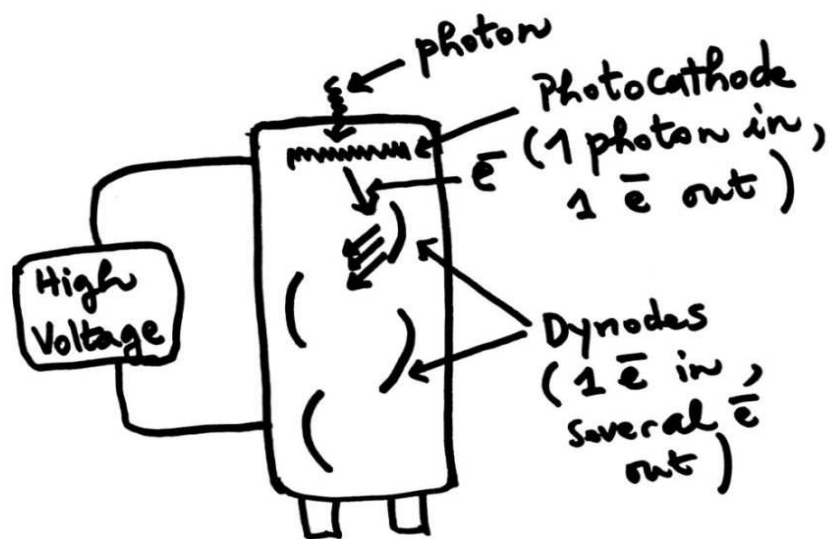 photon
Photocathode
(1 photon in,
1 e̅ out)
e̅
High
Voltage
Dynodes
(1 e̅ in,
several e̅
out)